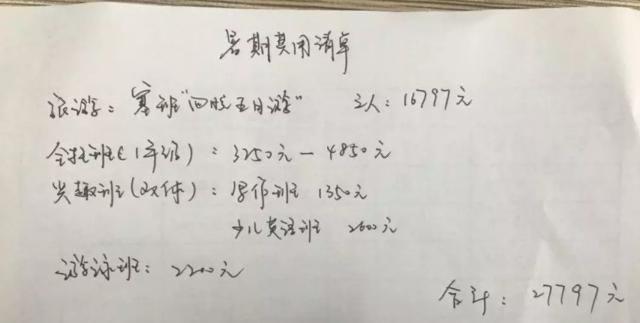 暑期费用清单
旅游：塞班"四晚五日游" 三人：16797元
全托班(1年级)：3250元－4850元
兴趣班(双休)：写作班 1350元
少儿英语班 2600元
游泳班：2200元
合计：27797元